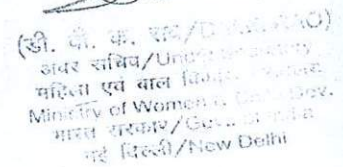 (डी. वी. के. राव/D.V.K. RAO)
अवर सचिव/Under Secretary
महिला एवं बाल विकास मंत्रालय
Ministry of Women & Child Dev.
भारत सरकार/Govt. of India
नई दिल्ली/New Delhi